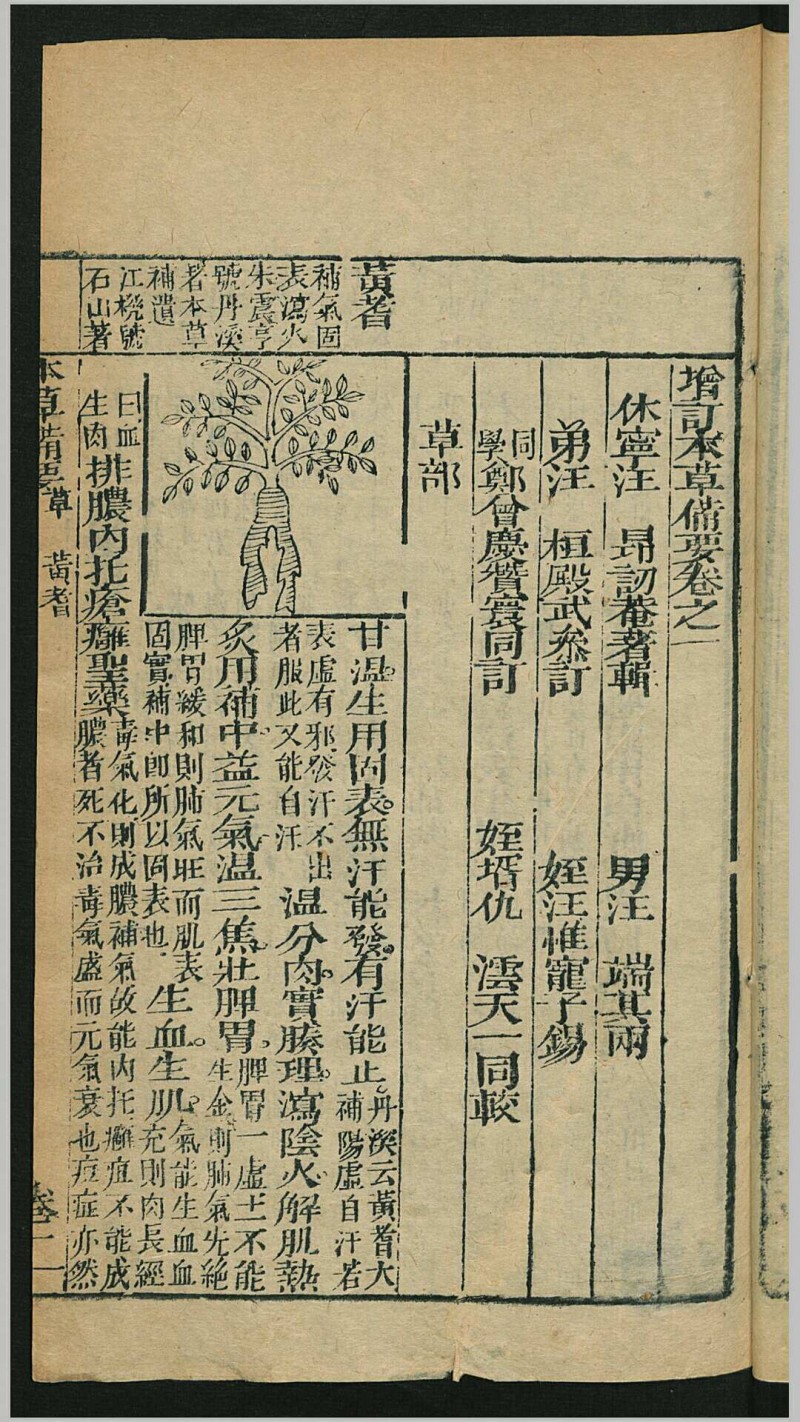 增訂本草備要卷之一
休寧汪　昻訒菴著輯　男汪　端其兩
弟汪　桓殿武叅訂　姪汪惟寵子錫
同學鄭曾慶贊寰同訂　姪壻仇　澐天一同較
草部
黃耆
補氣固
表瀉火
朱震亨
號丹溪
者本草
補遺
江機號
石山著
甘溫。生用固表。無汗能發。有汗能止。丹溪云黃耆大
補陽虛自汗若
表虛有邪發汗不出
者服此又能自汗
溫分肉。實腠理。瀉陰火。解肌熱
炙用補中。益元氣。溫三焦。壯脾胃。脾胃一虛土不能
生金則肺氣先絕
脾胃緩和則肺氣旺而肌表
固實補中卽所以固表也
生血。生肌。氣能生血血
充則肉長經
曰血
生肉
排膿內托。瘡癰聖藥
毒氣化則成膿補氣故能內托癰疽不能成
膿者死不治毒氣盛而元氣衰也痘症亦然
本草備要
草　黃耆
卷一　一